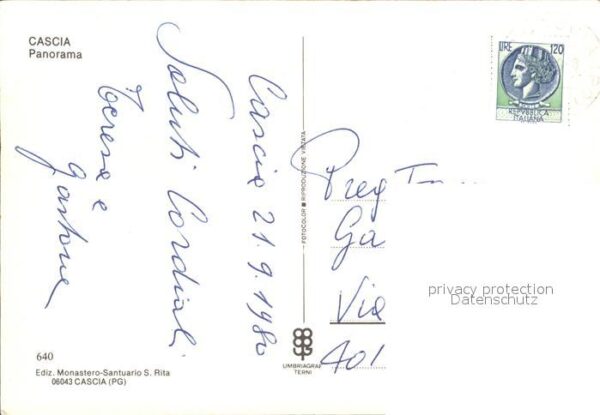 CASCIA
Panorama
Cascia 21.9.1980
Saluti Cordiali
Teresa e
Gastone
640
Ediz. Monastero-Santuario S. Rita
06043 CASCIA (PG)
FOTOCOLOR ■ RIPRODUZIONE VIETATA
UMBRIAGRAF
TERNI
LIRE 120
REPVBBLICA
ITALIANA
Preg
Ga
Via
401
privacy protection
Datenschutz